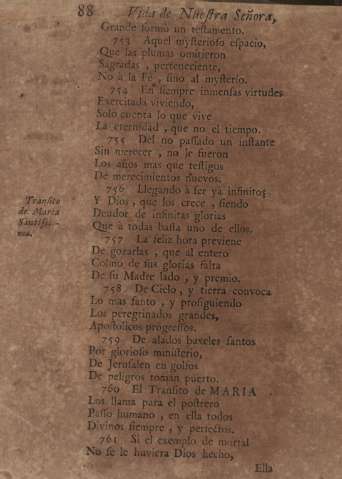 88 Vida de Nuestra Señora,
Grande formó un testamento.
753 Aquel mysterioso espacio,
Que las plumas omitieron
Sagradas, perteneciente,
No à la Fé, sino al mysterio.
754 En siempre inmensas virtudes
Exercitada viviendo,
Solo cuenta lo que vive
La eternidad, que no el tiempo.
755 Del no passado un instante
Sin merecer, no le fueron
Los años mas que testigos
De merecimientos nuevos.
756 Llegando à ser yá infinitos
Y Dios, que los crece, siendo
Deudor de infinitas glorias
Que à todas basta uno de ellos.
Transito
de Maria
Santissi-
ma.
757 La feliz hora previene
De gozarlas, que al entero
Colmo de sus glorias falta
De su Madre lado, y premio.
758 De Cielo, y tierra convoca
Lo mas santo, y prosiguiendo
Los peregrinados grandes,
Apostolicos progressos.
759 De alados baxeles santos
Por glorioso ministerio,
De Jerusalen en golfos
De peligros toman puerto.
760 El Transito de MARIA
Los llama para el postrero
Passo humano, en ella todos
Divinos siempre, y perfectos.
761 Si el exemplo de mortal
No se le huviera Dios hecho,
Ella